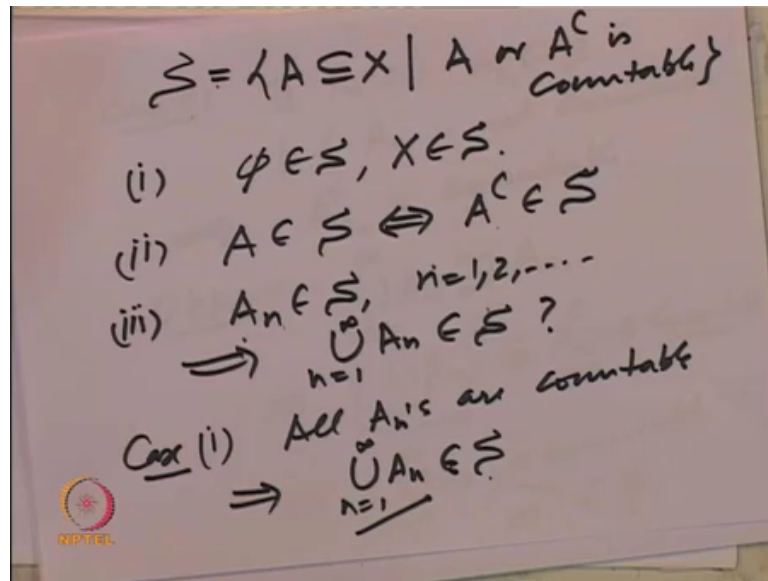 S = {A ⊆ X | A or A^c is
countable}
(i) φ ∈ S, X ∈ S.
(ii) A ∈ S ⇔ A^c ∈ S
(iii) A_n ∈ S, n=1,2,....
⇒ ∞∪n=1 A_n ∈ S ?
Case (i) All A_n's are countable
⇒ ∞∪n=1 A_n ∈ S
NPTEL